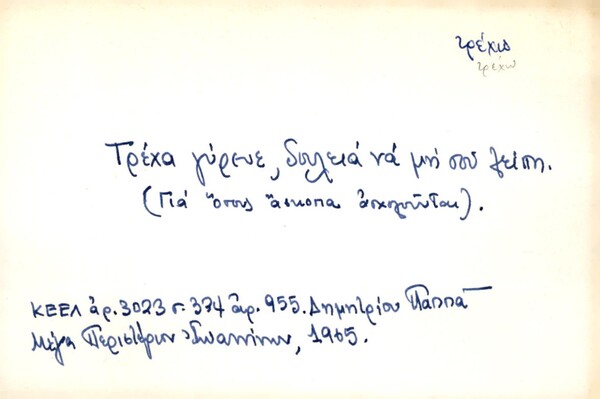 τρέχω
τρέχω
Τρέχα γύρευε, δουλειά νά μή σοῦ λείπη.
(Γιά ὅσους ἄσκοπα ἀσχολοῦνται).
ΚΕΕΛ ἀρ. 3023 σ. 374 ἀρ. 955. Δημητρίου Παππᾶ
Μέγα Περιστέριον Ἰωαννίνων, 1965.